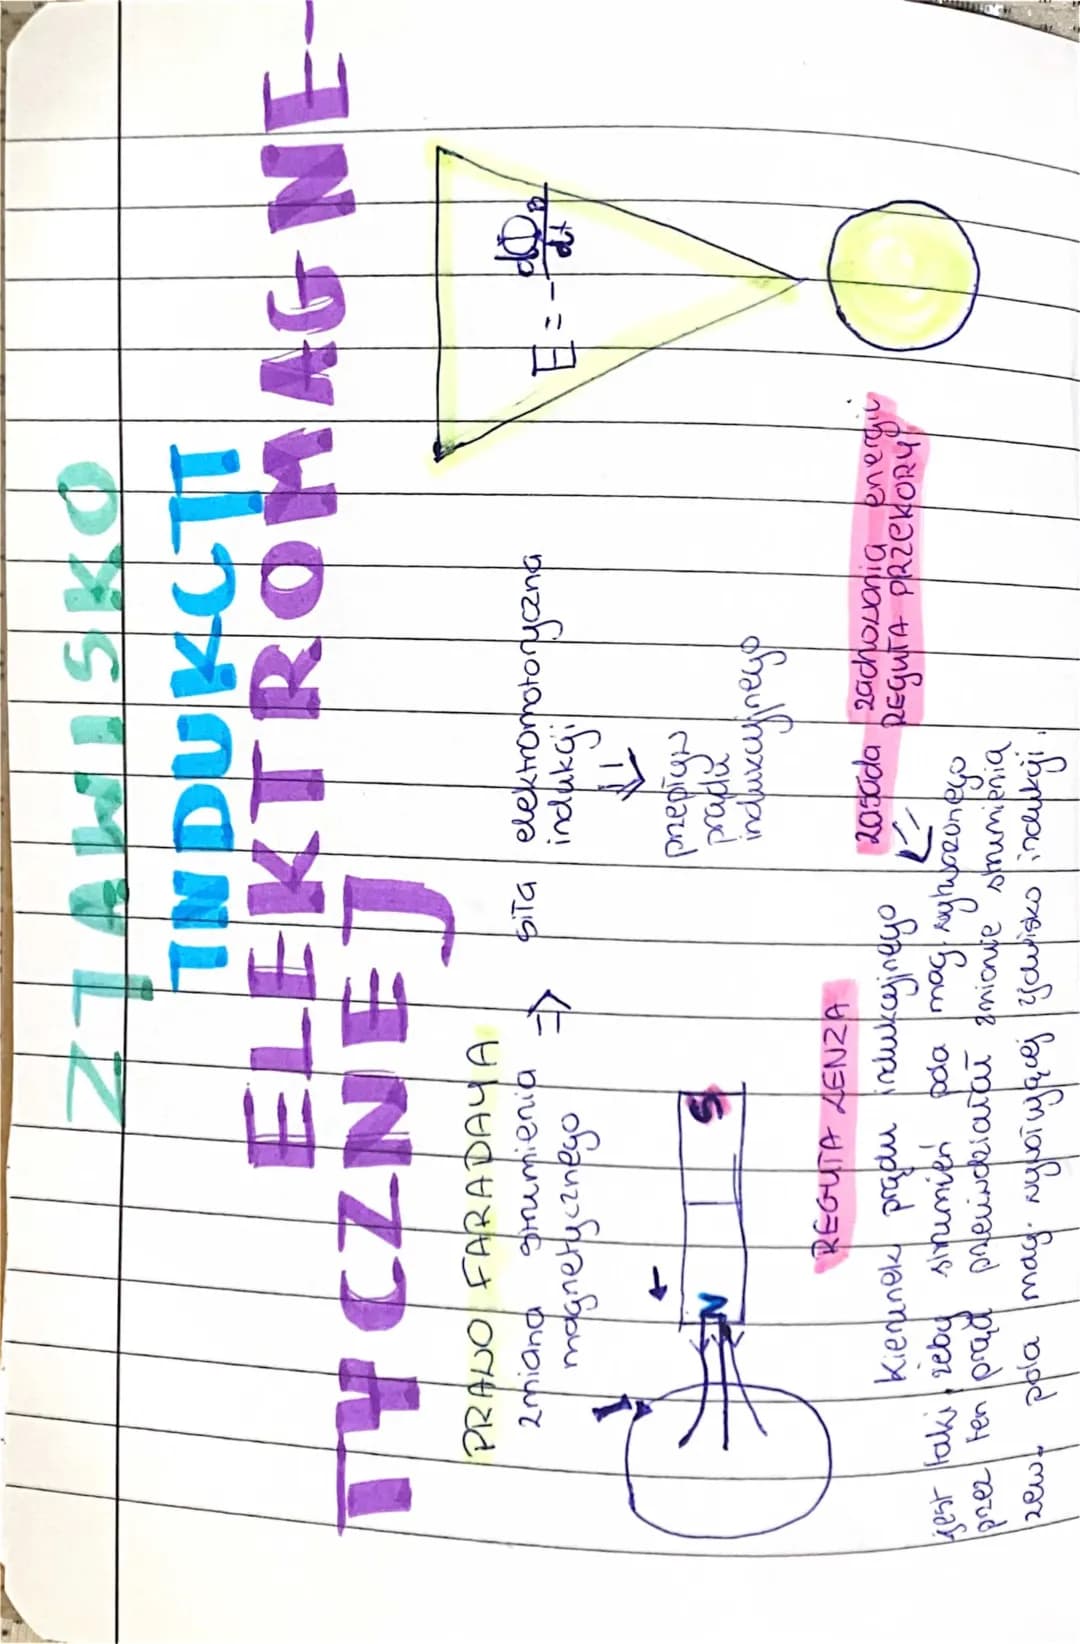 ZJAWISKO
INDUKCJI
ELEKTROMAGNE-
TYCZNEJ
PRAWO FARADAYA
zmiana strumienia
magnetycznego
⇒
siła elektromotoryczna
indukcji
⇓
przepływ
prądu
indukcyjnego
E = - dΦB/dt
I
N S
REGUŁA LENZA
zasada zachowania energii
REGUŁA PRZEKORY
Kierunek prądu indukcyjnego
jest taki, żeby strumień pola mag. wytworzonego
przez ten prąd przeciwdziałał zmianie strumienia
zew. pola mag. wywołującej zjawisko indukcji.